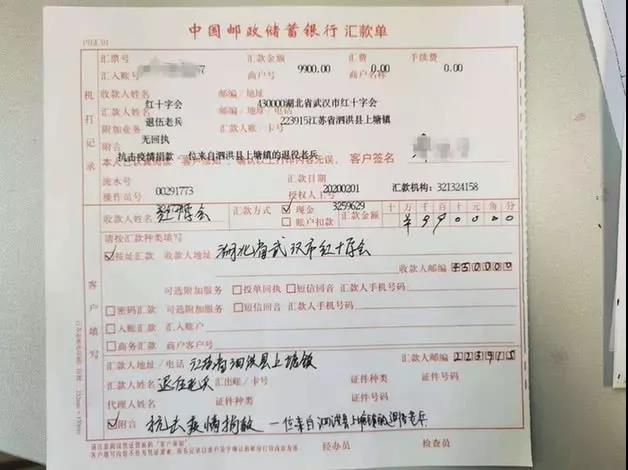 中国邮政储蓄银行 汇款单
汇票号 汇款金额 汇费 手续费
9900.00 0.00 0.00
汇入账号 商户号 商户名称
收款人姓名 邮编/地址
红十字会 430000湖北省武汉市红十字会
汇款人姓名 邮编/地址/电话
退伍老兵 223915江苏省泗洪县上塘镇
附加业务 汇款人账/卡号
无回执
附言
抗击疫情捐款 一位来自泗洪县上塘镇的退役老兵
客户签名
流水号 汇款日期
00291773 20200201 汇款机构:321324158
操作员号 授权人工号
3259629
机打记录
收款人姓名 红十字会 汇款方式 现金 汇款金额 十万千百十元角分
账户扣款 ¥990000
请按汇款种类填写
按址汇款 收款人地址 湖北省武汉市红十字会
收款人邮编 430000
可选附加服务 投单回执 短信回音 汇款人手机号码
密码汇款 可选附加服务 短信回音 汇款人手机号码
入账汇款 汇入账户
商务汇款 商户客户号
客户填写
汇款人地址/电话 江苏省泗洪县上塘镇 汇款人邮编 223915
汇款人姓名 退伍老兵 汇出账/卡号 证件种类 证件号码
代理人姓名 证件种类 证件号码
附言 抗击疫情捐款 一位来自泗洪县上塘镇的退伍老兵
经办员 检查员